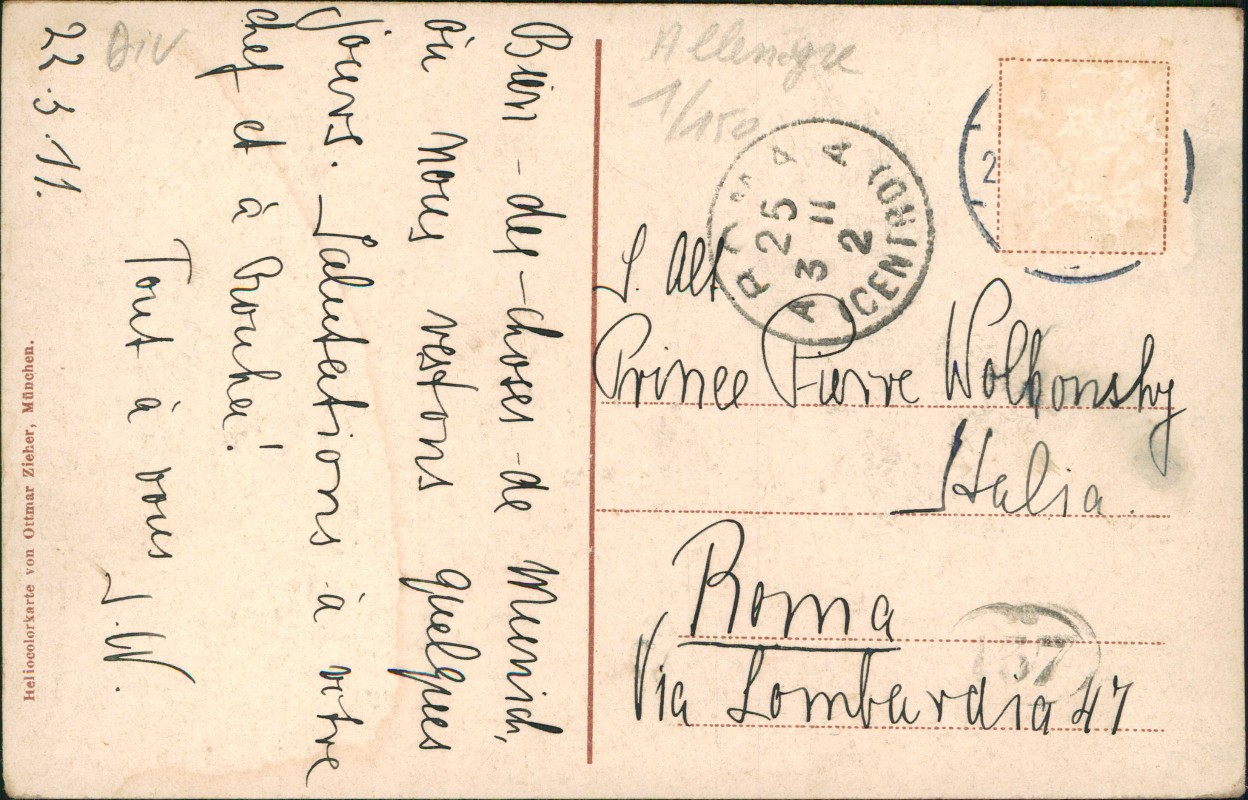 22.3.11.
Bien-des-choses-de Munich,
où nous restons quelques
jours. Salutations à votre
chef et à Broucha!
Tout à vous
J.W.
Heliocolorkarte von Ottmar Zieher, München.
Div
Allemagne
1/150
ROMA
(CENTRO)
25 3 11
2
2
S. Alt.
Prince Pierre Wolkonsky
Italia.
Roma
Via Lombardia 47
137